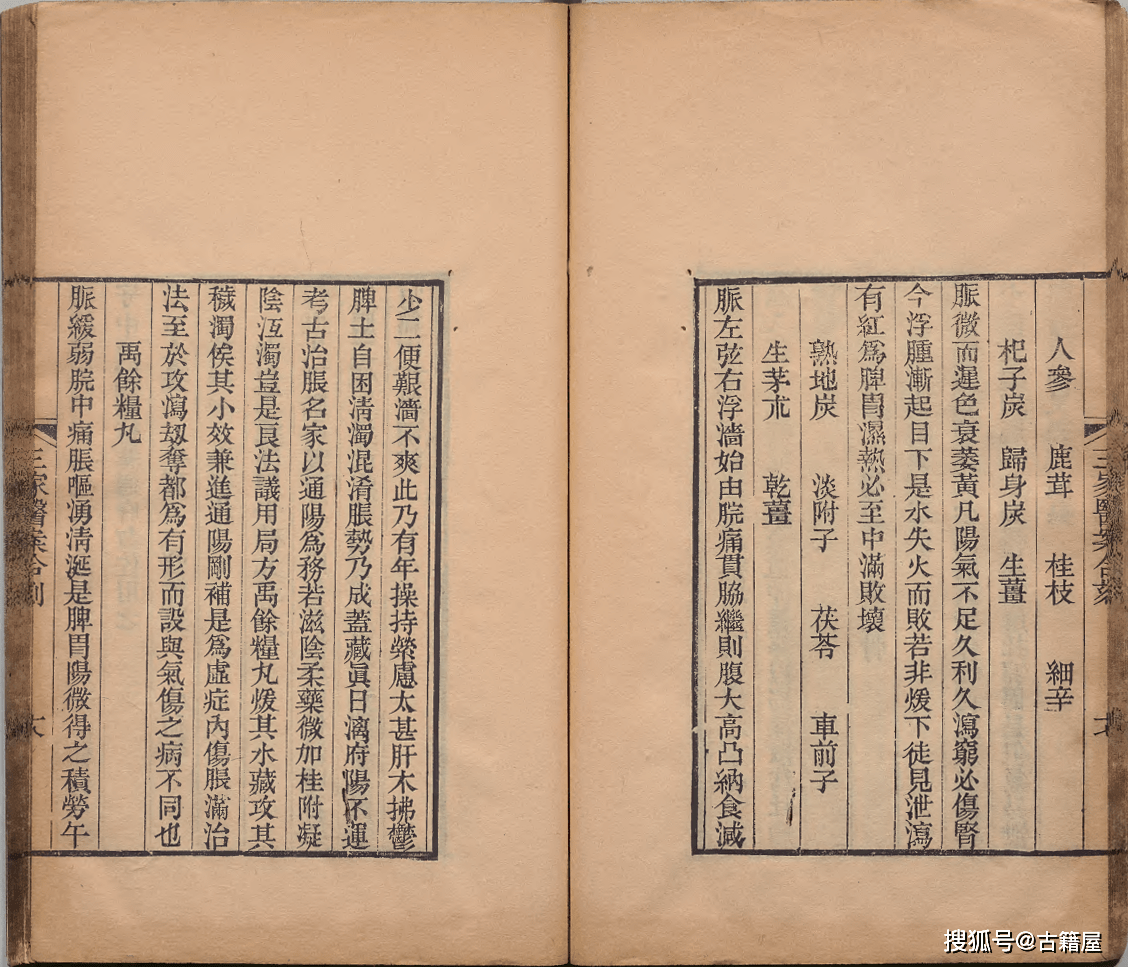 三家醫案合刻
人參 鹿茸 桂枝 細辛
杞子炭 歸身炭 生薑
脈微而遲色衰萎黃凡陽氣不足久利久瀉窮必傷腎
今浮腫漸起目下是水失火而敗若非煖下徒見泄瀉
有紅爲脾胃濕熱必至中滿敗壞
熟地炭 淡附子 茯苓 車前子
生茅朮 乾薑
脈左弦右浮濇始由脘痛貫脇繼則腹大高凸納食減
少二便艱濇不爽此乃有年操持縈慮太甚肝木拂鬱
脾土自困淸濁混淆脹勢乃成蓋藏眞日漓府陽不運
考古治脹名家以通陽爲務若滋陰柔藥微加桂附凝
陰沍濁豈是良法議用局方禹餘糧丸煖其水藏攻其
穢濁俟其小效兼進通陽剛補是爲虛症內傷脹滿治
法至於攻瀉刼奪都爲有形而設與氣傷之病不同也
禹餘糧丸
脈緩弱脘中痛脹嘔湧淸涎是脾胃陽微得之積勞午
三家醫案合刻
搜狐号@古籍屋